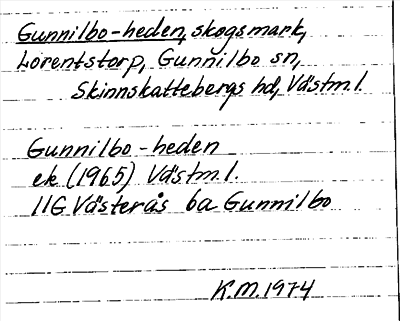 Gunnilbo-heden, skogsmark,
Lorentstorp, Gunnilbo sn,
Skinnskattebergs hd, Västm.l.
Gunnilbo-heden
ek (1965) Västm.l.
11G Västerås 6a Gunnilbo
K.M.1974